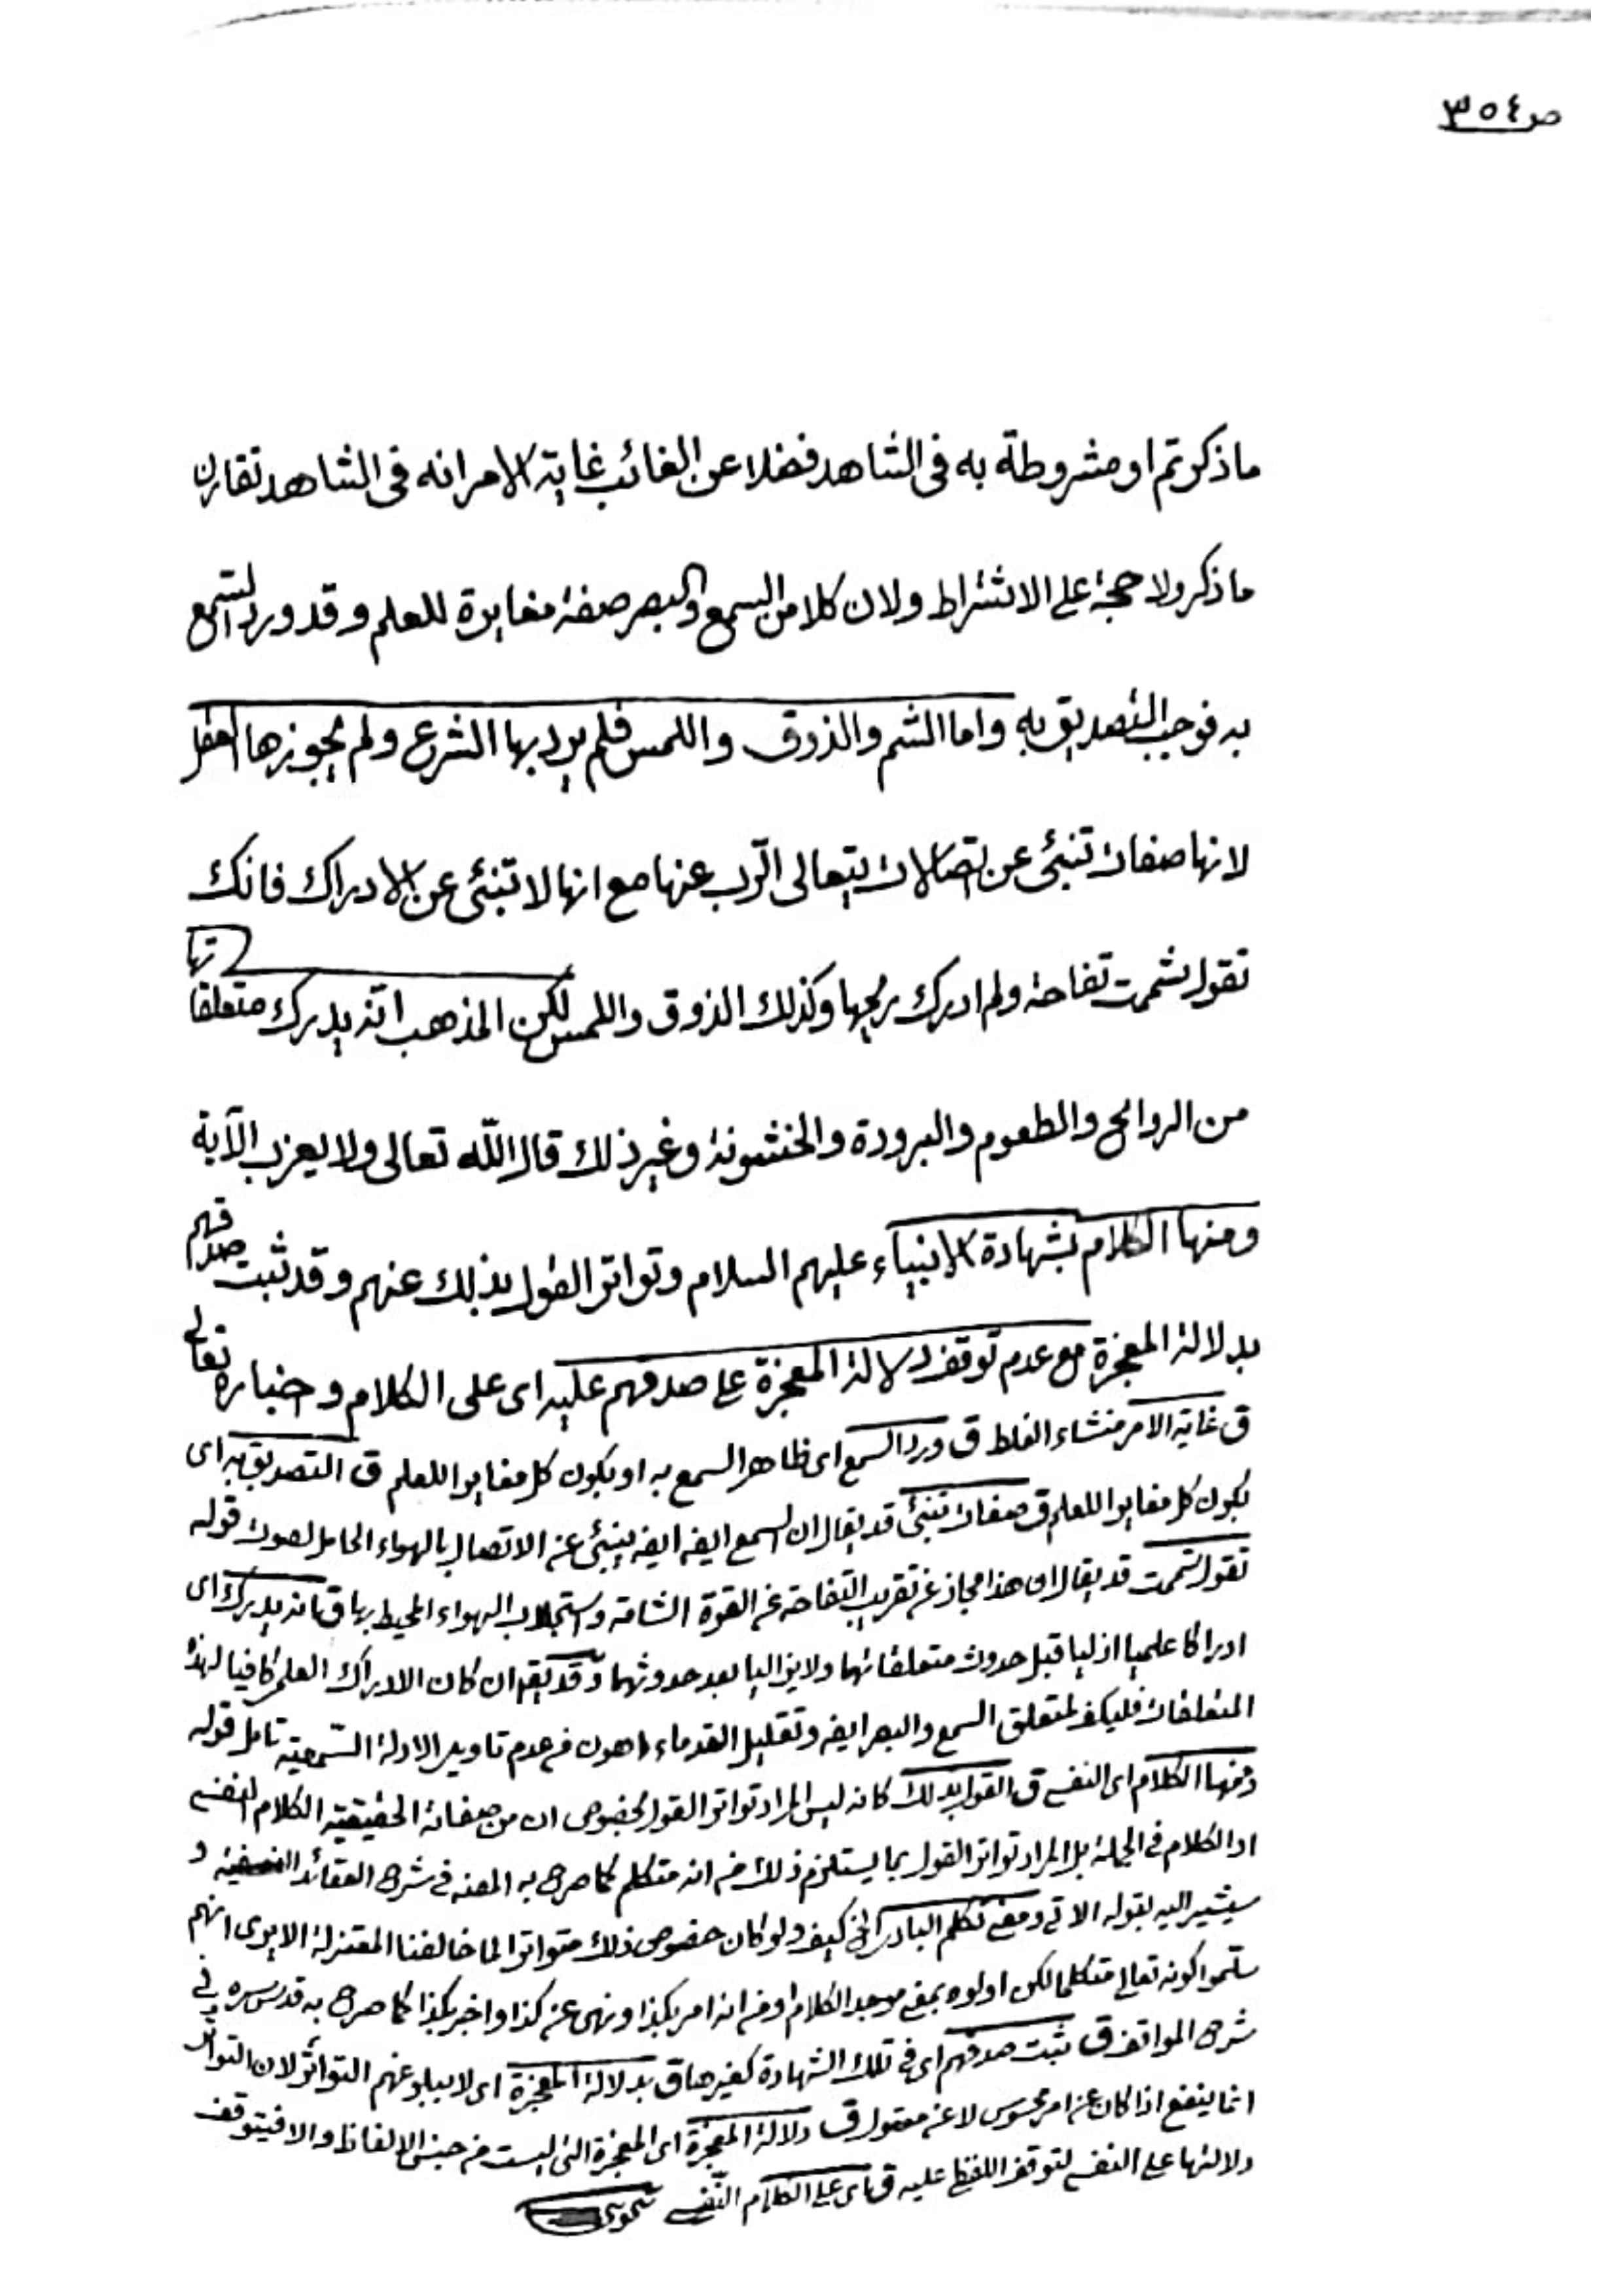 ص ٣٥٤
ما ذكرتم او مشروطة به فى الشاهد فضلا عن الغائب غاية الامر انه فى الشاهد تقارن
ما ذكر ولا حجة على الاشتراط ولان كلا من السمع والبصر صفة مغايرة للعلم وقد ورد السمع
به فوجب التصديق به واما الشم والذوق واللمس فلم يرد بها الشرع ولم يجوزها العقل
لانها صفات تنبئ عن اتصالات يتعالى الرّب عنها مع انها لا تنبئ عن الادراك فانك
تقول شممت تفاحة ولم ادرك ريحها وكذلك الذوق واللمس لكن المذهب انّه يدرك متعلقاتها
من الروائح والطعوم والبرودة والخشونة وغير ذلك قال اللّه تعالى ولا يعزب الآية
ومنها الكلام بشهادة الانبياء عليهم السلام وتواتر القول بذلك عنهم وقد ثبت صدقهم
بدلالة المعجزة مع عدم توقف دلالة المعجزة على صدقهم عليه اى على الكلام واخباره تعالى
ق غاية الامر منشاء الغلط ق ورد السمع اى ظاهر السمع به او بكون كل مغايرا للعلم ق التصديق به اى
بكون كل مغايرا للعلم ق صفات تنبئ قد يقال ان السمع ايضه ايضه ينبئ عن الاتصال بالهواء الحامل لصوت قوله
تقول شممت قد يقال ان هذا مجاز عن تقريب التفاحة عن القوة الشامة واستجلاب الهواء المحيط بها ق انه يدرك اى
ادراكا علميا ازليا قبل حدوث متعلقاتها ولا يزاليا بعد حدوثها وقد يقال ان كان الادراك العلمى كافيا لهذه
المتعلقات فليكف لمتعلق السمع والبصر ايضه وتقليل القدماء اهون من عدم تاويل الادلة السّمعية تامل قوله
ومنها الكلام اى النفسى ق القول بذلك كانه ليس المراد تواتر القول بخصوص ان من صفاته الحقيقية الكلام النفسى
اد الكلام فى الجملة بل المراد تواتر القول بما يستلزم ذلك من انه متكلم كما صرح به المصنف فى شرح العقائد النسفية و
سيشير اليه بقوله الاتى ومعنى تكلم البارى الخ كيف ولو كان خصوص ذلك متواترا لما خالفنا المعتزلة الا يرى انهم
سلّموا كونه تعالى متكلما لكن اولوه بمعنى موجد الكلام او من انه امر بكذا ونهى عن كذا واخبر بكذا كما صرح به قدس سره فى
شرح المواقف ق ثبت صدقهم اى فى تلك الشهادة كغيرها ق بدلالة المعجزة اى لا ببلوغهم التواتر لان التواتر
انما ينفع اذا كان عن امر محسوس لا عن معقول ق دلالة المعجزة اى المعجزة التى ليست من جنس الالفاظ والا فيتوقف
دلالتها على النفسى لتوقف اللفظ عليه ق اى على الكلام النّفسى